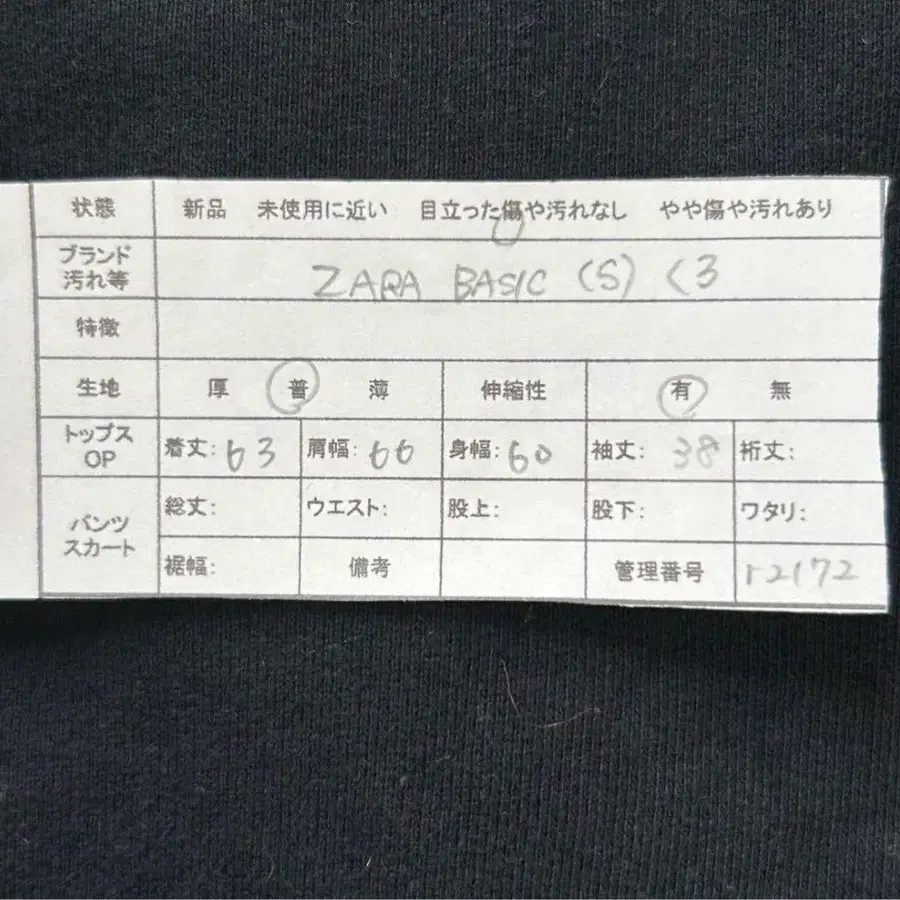 状態 新品 未使用に近い 目立った傷や汚れなし やや傷や汚れあり
ブランド
汚れ等
ZARA BASIC (S) <3
特徴
生地 厚 普 薄 伸縮性 有 無
トップス
OP
着丈: 63 肩幅: 66 身幅: 60 袖丈: 38 裄丈:
パンツ
スカート
総丈: ウエスト: 股上: 股下: ワタリ:
裾幅: 備考 管理番号 r2172